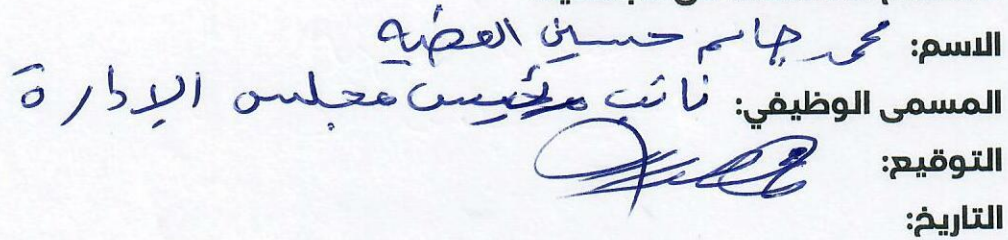 الاسم: محمد جاسم حسين
المسمى الوظيفي: نائب رئيس مجلس الإدارة
التوقيع:
التاريخ: